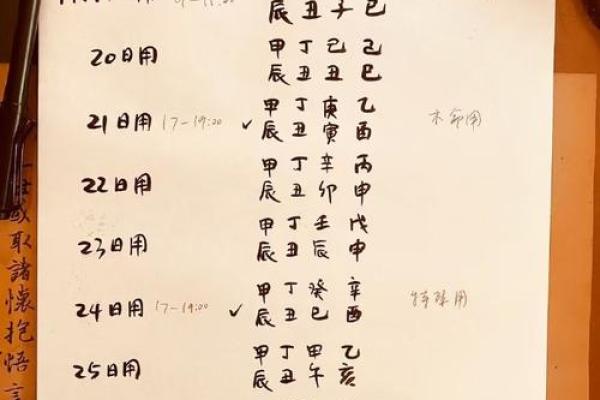 辰 丑 子 巳
20日用 甲 丁 己 己
辰 丑 丑 巳
21日用 17-19:00 ✓ 甲 丁 庚 乙 木命用
辰 丑 寅 酉
22日用 甲 丁 辛 丙
辰 丑 卯 申
23日用 甲 丁 壬 戊
辰 丑 辰 申
24日用 17-19:00 ✓ 甲 丁 癸 辛 特殊用
辰 丑 巳 酉
25日用 甲 丁 甲 乙
辰 丑 午 亥
或取諸懷抱悟言